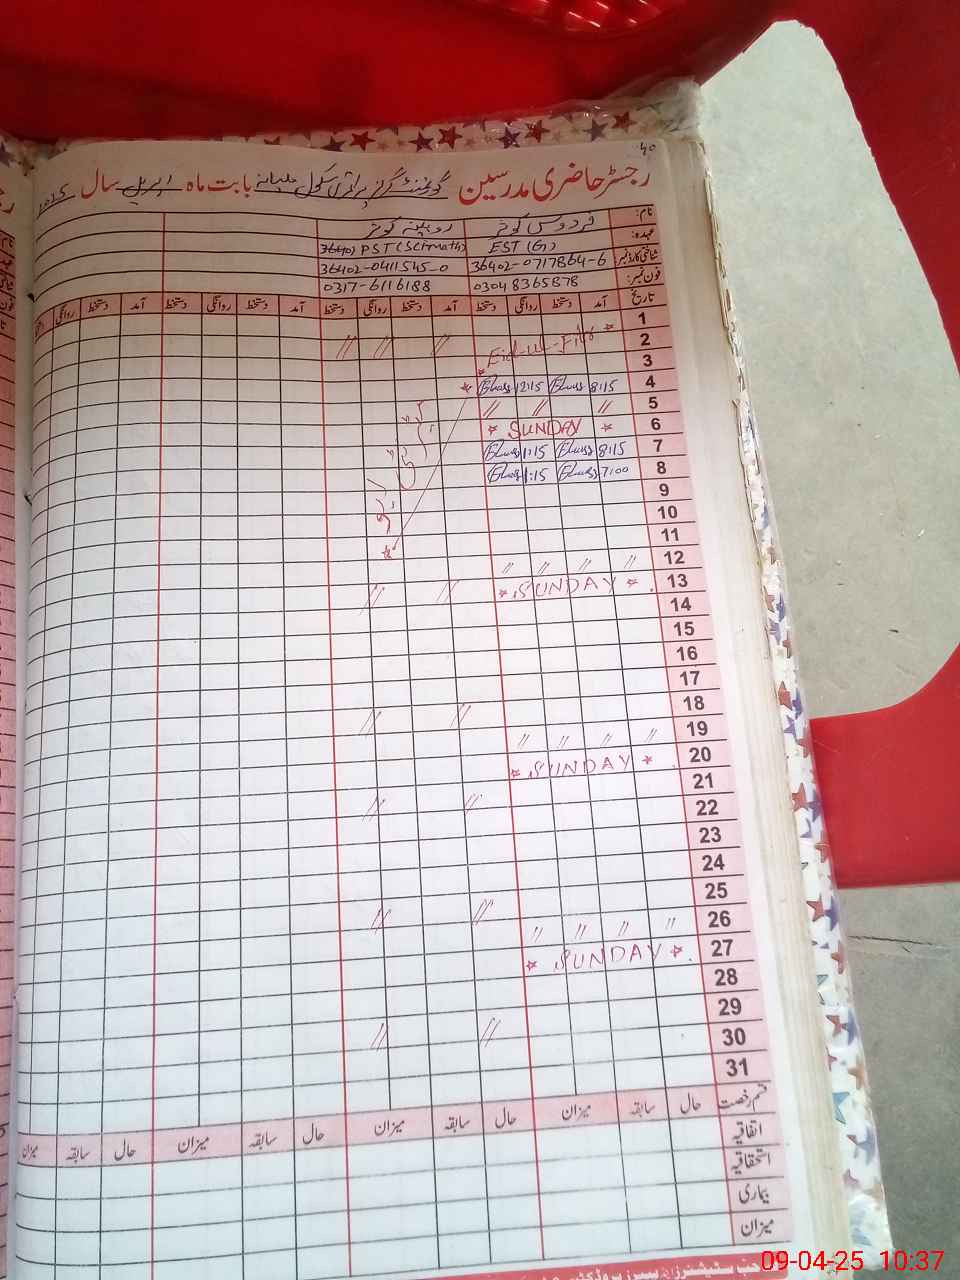 40
رجسٹر حاضری مدرسین گورنمنٹ گرلز پرائمری سکول بابت ماہ اپریل سال 2025
نام: فردوس کوثر روبینہ کوثر
عہدہ: EST (G) PST (Sci-math)
شناختی کارڈ نمبر: 36402-0717864-6 36402-0411545-0
فون نمبر: 03048365878 0317-6116188
تاریخ آمد دستخط روانگی دستخط آمد دستخط روانگی دستخط آمد دستخط روانگی دستخط آمد دستخط روانگی
1
2 * Eid-ul-Fitr * // // //
3
4 8:15 12:15 *
5 // // //
6 * SUNDAY *
7 8:15 1:15
8 7:00 1:15
9
10
11
12 〃 〃 〃 〃
13 * SUNDAY * // //
14
15
16
17
18
19 〃 〃 〃 〃 // //
20 * SUNDAY *
21
22 // //
23
24
25
26 〃 〃 〃 〃 // //
27 * SUNDAY *
28
29
30 // //
31
قسم رخصت حال سابقہ میزان حال سابقہ میزان حال سابقہ میزان حال سابقہ میزان
اتفاقیہ
استحقاقیہ
بیماری
میزان
09-04-25 10:37